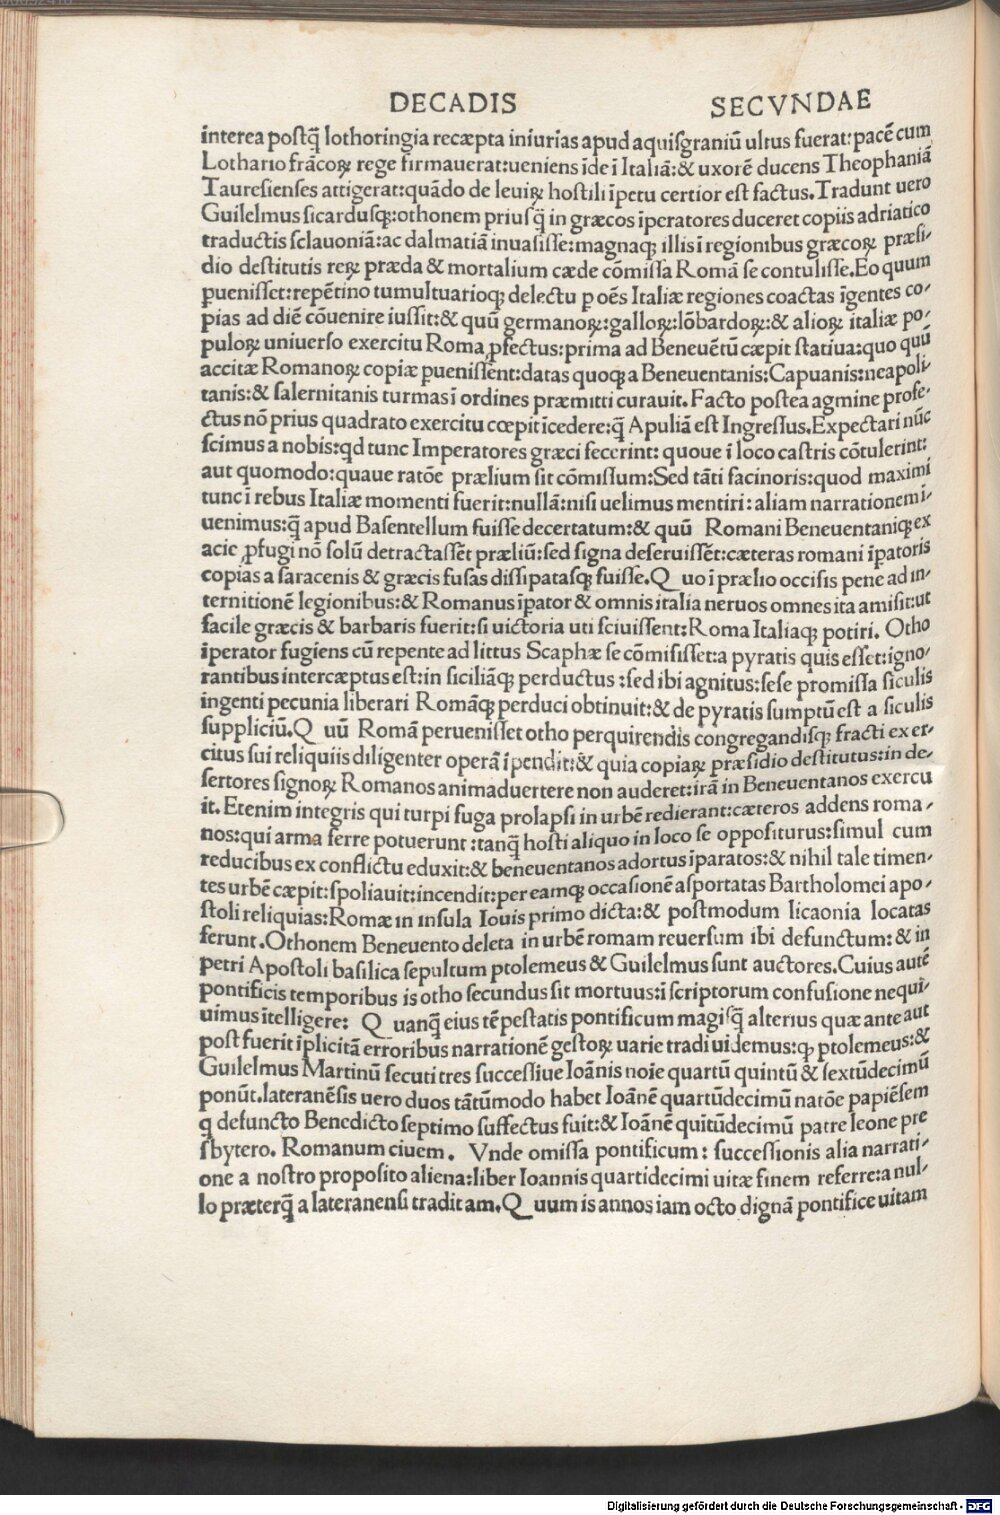 DECADIS SECVNDAE
interea postq̄ lothoringia recæpta iniurias apud aquisgraniū ultus fuerat: pacē cum
Lothario frācoꝝ rege firmauerat:ueniens īde ī Italiā:& uxorē ducens Theophaniā
Tauresienses attigerat:quādo de leuiꝝ hostili īpetu certior est factus.Tradunt uero
Guilelmus sicardusqꝫ:othonem priusq̄ in græcos īperatores duceret copiis adriatico
traductis sclauoniā:ac dalmatiā inuasisse:magnaqꝫ illis ī regionibus græcoꝝ præsi-
dio destitutis reꝝ præda & mortalium cæde cōmissa Romā se contulisse.Eo quum
ꝑuenisset:repētino tumultuarioqꝫ delectu ꝑ oēs Italiæ regiones coactas īgentes co-
pias ad diē cōuenire iussit:& quū germanoꝝ:galloꝝ:lōbardoꝝ:& alioꝝ italiæ po-
puloꝝ uniuerso exercitu Roma ꝓfectus:prima ad Beneuētū cæpit statiua:quo quū
accitæ Romanoꝝ copiæ ꝑuenissēnt:datas quoqꝫ a Beneuentanis:Capuanis:neapoli-
tanis:& salernitanis turmas ī ordines præmitti curauit.Facto postea agmine profe-
ctus nō prius quadrato exercitu cœpit īcedere:q̄ Apuliā est Ingressus.Expectari nūc
scimus a nobis:qd tunc Imperatores græci fecerint: quoue ī loco castris cōtulerint:
aut quomodo:quaue ratōe prælium sit cōmissum:Sed tāti facinoris:quod maximi
tunc ī rebus Italiæ momenti fuerit:nullā:nisi uelimus mentiri: aliam narrationem i-
uenimus:q̄ apud Basentellum fuisse decertatum:& quū Romani Beneuentaniqꝫ ex
acie ꝓfugi nō solū detractassēt præliū:sed signa deseruissēt:cæteras romani īpatoris
copias a saracenis & græcis fusas dissipatasqꝫ fuisse.Q uo ī prælio occisis pene ad in-
ternitionē legionibus:& Romanus īpator & omnis italia neruos omnes ita amisit:ut
facile græcis & barbaris fuerit:si uictoria uti sciuissent:Roma Italiaqꝫ potiri. Otho
īperator fugiens cū repente ad littus Scaphæ se cōmisisset:a pyratis quis esset:igno-
rantibus intercæptus est:in siciliāqꝫ perductus :sed ibi agnitus:sese promissa siculis
ingenti pecunia liberari Romāqꝫ perduci obtinuit:& de pyratis sumptū est a siculis
suppliciū.Q uū Romā peruenisset otho perquirendis congregandisqꝫ fracti exer-
citus sui reliquiis diligenter operā īpendit:& quia copiaꝝ præsidio destitutus:in de-
sertores signoꝝ Romanos animaduertere non auderet:irā in Beneuentanos exercu
it. Etenim integris qui turpi fuga prolapsi in urbē redierant:cæteros addens roma-
nos:qui arma ferre potuerunt :tanq̄ hosti aliquo in loco se oppositurus:simul cum
reducibus ex conflictu eduxit:& beneuentanos adortus īparatos:& nihil tale timen-
tes urbē cæpit:spoliauit:incendit:per eamqꝫ occasionē asportatas Bartholomei apo-
stoli reliquias:Romæ in insula Iouis primo dicta:& postmodum licaonia locatas
ferunt.Othonem Beneuento deleta in urbē romam reuersum ibi defunctum:& in
petri Apostoli basilica sepultum ptolemeus & Guilelmus sunt auctores.Cuius autē
pontificis temporibus is otho secundus sit mortuus:ī scriptorum confusione nequi-
uimus ītelligere: Q uanq̄ eius tēpestatis pontificum magisq̄ alterius quæ ante aut
post fuerit īplicitā erroribus narrationē gestoꝝ uarie tradi uidemus:qꝫ ptolemeus:&
Guilelmus Martinū secuti tres successiue Ioānis noīe quartū quintū & sextūdecimū
ponūt.lateranēsis uero duos tātūmodo habet Ioānē quartūdecimū natōe papiēsem
q defuncto Benedicto septimo suffectus fuit:& Ioānē quītūdecimū patre leone pre
sbytero. Romanum ciuem. Vnde omissa pontificum: successionis alia narrati-
one a nostro proposito aliena:liber Ioannis quartidecimi uitæ finem referre:a nul-
lo præterq̄ a lateranensi traditam.Q uum is annos iam octo dignā pontifice uitam
Digitalisierung gefördert durch die Deutsche Forschungsgemeinschaft - DFG